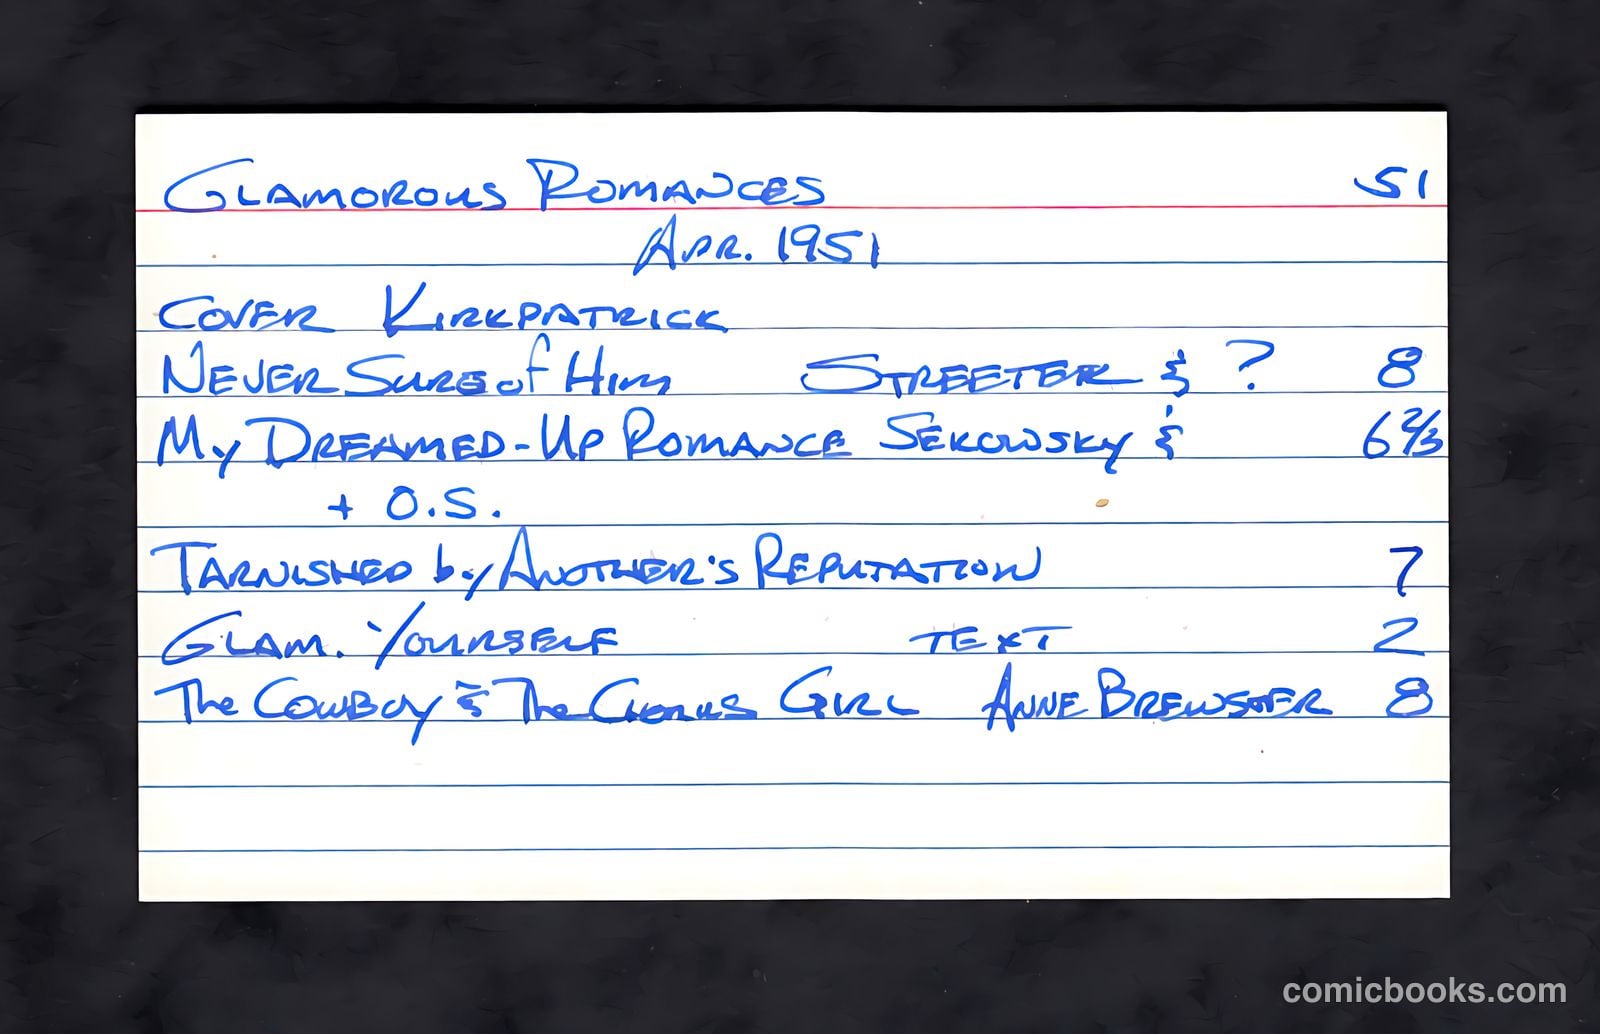 GLAMOROUS ROMANCES 51
APR. 1951
COVER KIRKPATRICK
NEVER SURE of HIM STREETER & ? 8
MY DREAMED-UP ROMANCE SEKOWSKY & 6 2/3
+ O.S.
TARNISHED by ANOTHER'S REPUTATION 7
GLAM. YOURSELF TEXT 2
The COWBOY & The CHORUS GIRL ANNE BREWSTER 8
comicbooks.com